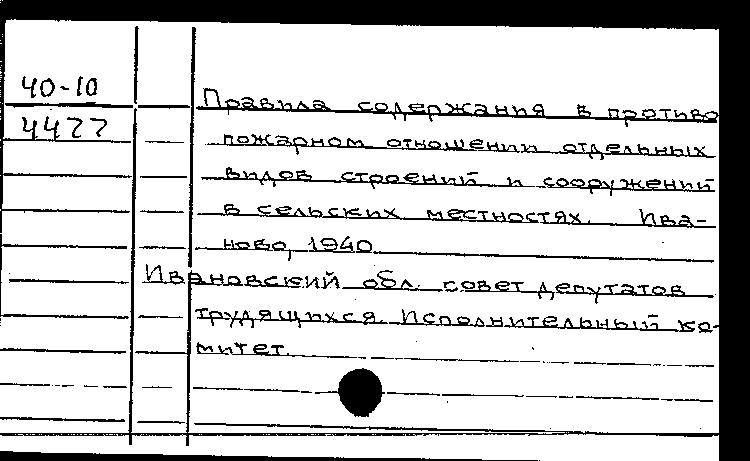 40-10
4477
Правила содержания в противо
пожарном отношении отдельных
видов строений и сооружений
в сельских местностях. Ива-
ново, 1940.
Ивановский обл. совет депутатов
трудящихся. Исполнительный ко-
митет.